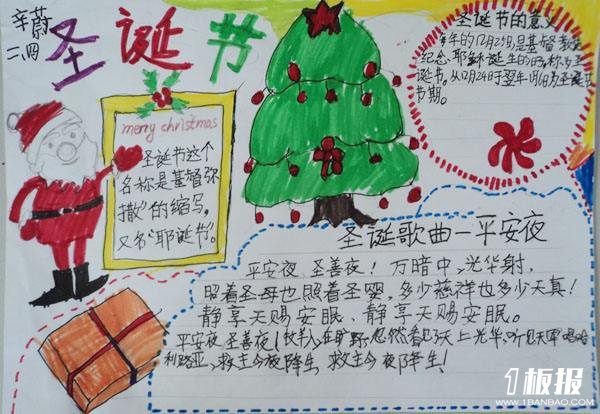 辛蔚
二.四
圣诞节
merry christmas
圣诞节这个
名称是基督弥
撒”的缩写,
又名“耶诞节”。
圣诞节的意义
每年的12月25日,是基督教
纪念耶稣诞生的日
诞节。从12月24日于翌年1月6日为圣诞节
节期。
圣诞歌曲—平安夜
平安夜、圣善夜!万暗中,光华射,
照着圣母也照着圣婴,多少慈祥也多少天真!
静享天赐安眠、静享天赐安眠。
平安夜、圣善夜!牧羊人在旷野,忽然看见了天上光华,听见天军唱哈
利路亚,救主今夜降生,救主今夜降生!
1板报
WWW.1BANBAO.COM